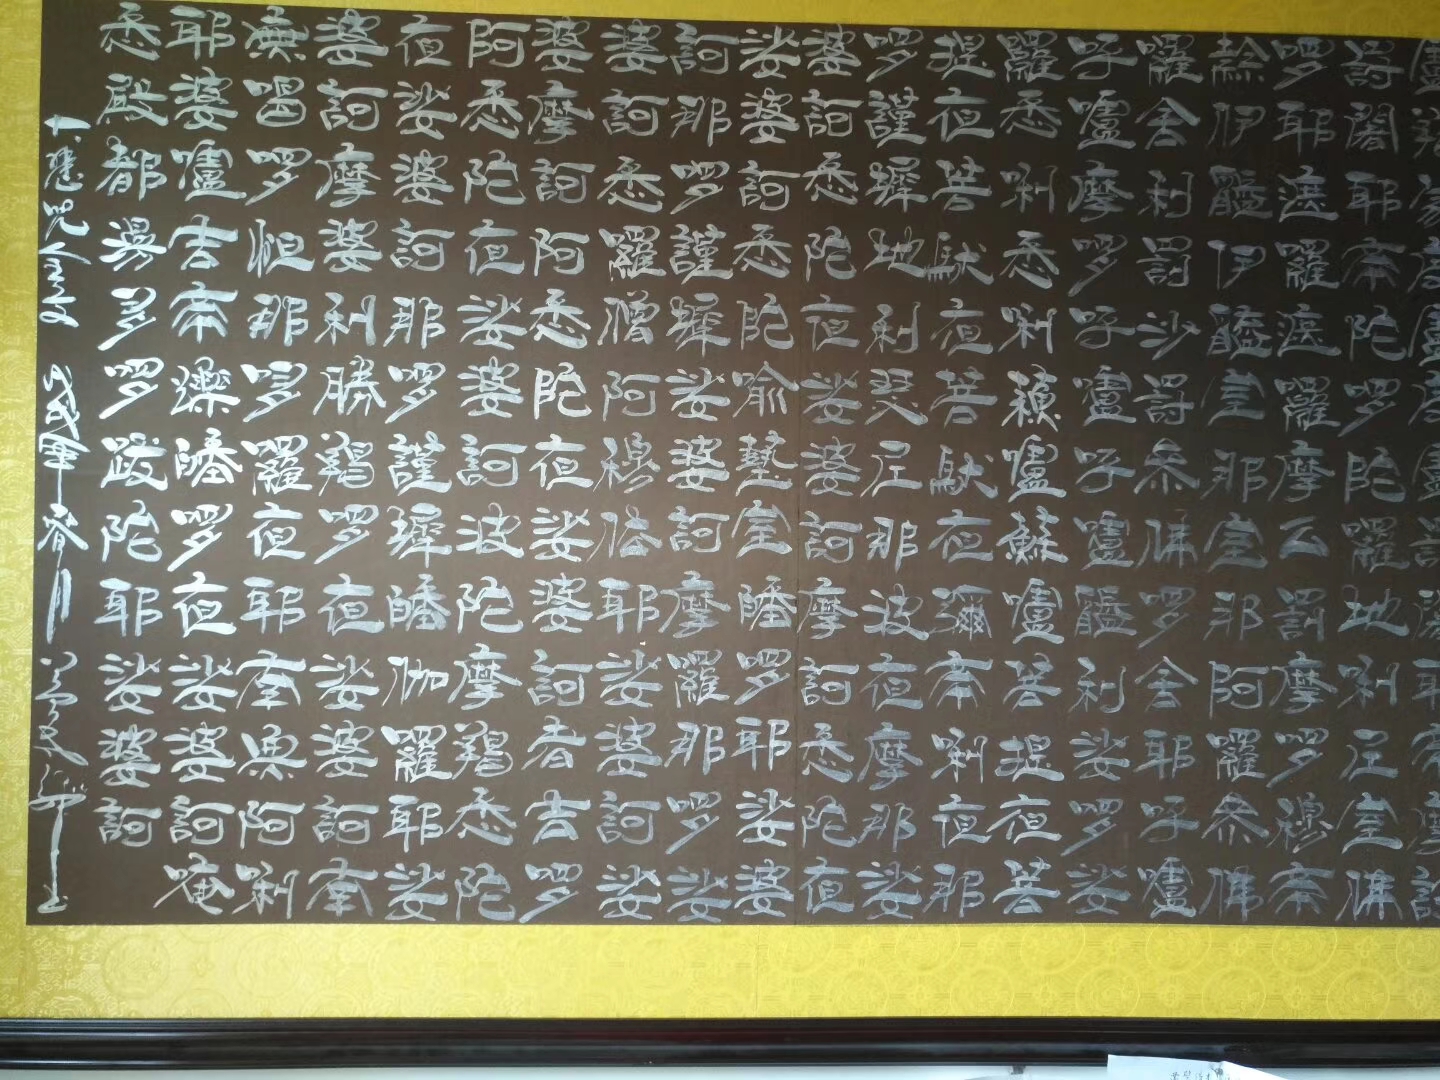 罰闍耶帝陀啰陀囉地唎尼室佛
啰耶遮囉遮囉摩么罰摩啰穆帝
隸伊醯伊醯室那室那阿囉參佛
囉舍利罰沙罰參佛啰舍耶呼嚧
呼嚧摩啰呼嚧呼嚧醯利娑啰娑
羅悉唎悉唎蘇嚧蘇嚧菩提夜菩
提夜菩馱夜菩馱夜彌帝唎夜那
啰謹墀地利瑟尼那波夜摩那娑
婆訶悉陀夜娑婆訶摩訶悉陀夜
娑婆訶悉陀喻藝室皤啰耶娑婆
訶那啰謹墀娑婆訶摩羅那啰娑
婆訶悉羅僧阿穆佉耶娑婆訶娑
婆摩訶阿悉陀夜娑婆訶者吉啰
阿悉陀夜娑婆訶波陀摩羯悉陀
夜娑婆訶那啰謹墀皤伽羅耶娑
婆訶摩婆利勝羯啰夜娑婆訶南
無喝啰怛那哆囉夜耶南無阿唎
耶婆嚧吉帝爍皤啰夜娑婆訶唵
悉殿都漫多啰跋陀耶娑婆訶
大悲咒全文 戊戌年春月